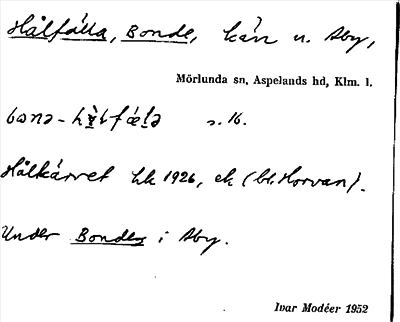 Hålfälla, Bonde, kän u. Åby,
Mörlunda sn, Aspelands hd, Klm. l.
s. 16.
Hålkärret hk 1926, ek (bl. Horvan).
Under Bondes i Åby.
Ivar Modéer 1952